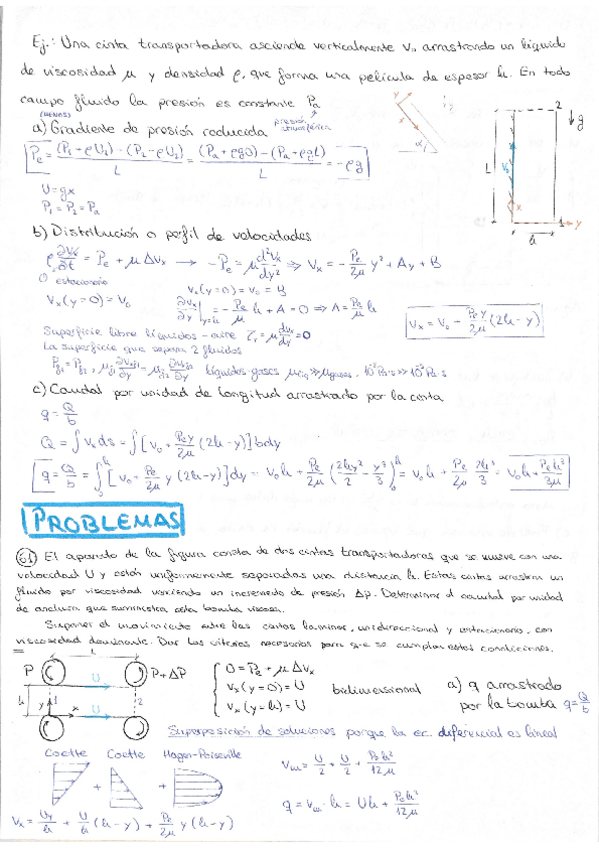 Ej.: Una cinta transportadora asciende verticalmente V₀, arrastrando un líquido
de viscosidad μ y densidad ρ, que forma una película de espesor h. En todo
campo fluido la presión es constante Pa
(menos) presión atmosférica
a) Gradiente de presión reducida
Pe = (P₁+ρU₁)-(P₂+ρU₂) / L = (Pa+ρg0)-(Pa+ρgL) / L = -ρg
U = gx
P₁ = P₂ = Pa
b) Distribución o perfil de velocidades
ρ ∂Vx/∂t = Pe + μΔVx → -Pe = μ d²Vx/dy² ⇒ Vx = -Pe/2μ y² + Ay + B
0 estacionario
Vx(y=0) = V₀ = B
Vx(y=0) = V₀
∂Vx/∂y|y=h = -Pe/μ h + A = 0 ⇒ A = Pe/μ h
Vx = V₀ - Pe y/2μ (2h-y)
Superficie libre líquidos-aire τ = μ dVx/dy = 0
La superficie que separa 2 fluidos
líquidos-gases μliq >> μgases
c) Caudal por unidad de longitud arrastrado por la cinta
q = Q/b
Q = ∫ Vx ds = ∫ [V₀ + Pe y/2μ (2h-y)] b dy
q = Q/b = ∫₀ʰ [V₀ + Pe/2μ y(2h-y)] dy = V₀h + Pe/2μ (2hy²/2 - y³/3)₀ʰ = V₀h + Pe/2μ 2h³/3 = V₀h + Pe h³/3μ
PROBLEMAS
61 El aparato de la figura consta de dos cintas transportadoras que se mueve con una
velocidad U y están uniformemente separadas una distancia h. Estas cintas arrastran un
fluido por viscosidad venciendo un incremento de presión ΔP. Determinar el caudal por unidad
de anchura que suministra esta bomba viscosa.
Suponer el movimiento entre las cintas laminar, unidireccional y estacionario, con
viscosidad dominante. Dar los criterios necesarios para que se cumplan estas condiciones.
P P+ΔP
0 = Pe + μΔVx
Vx(y=0) = U
Vx(y=h) = U
bidimensional
a) q arrastrado
por la bomba q = Q/b
Superposición de soluciones porque la ec. diferencial es lineal
Coette Coette Hagen-Poiseuille
Vm = U/2 + U/2 + Pe h²/12μ
q = Vm · h = Uh + Pe h³/12μ
Vx = Uy/h + U/h (h-y) + Pe/2μ y(h-y)